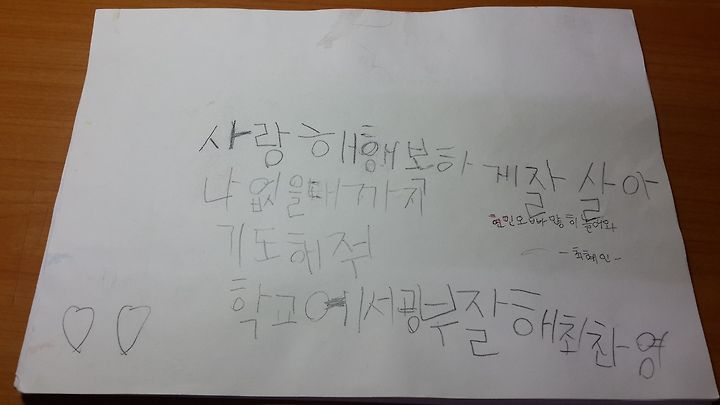 사랑해행보하게잘살아
나없을때까지
현민오빠 많히 놀어와
기도해줘
-최혜인-
학교에서공부잘해최찬영